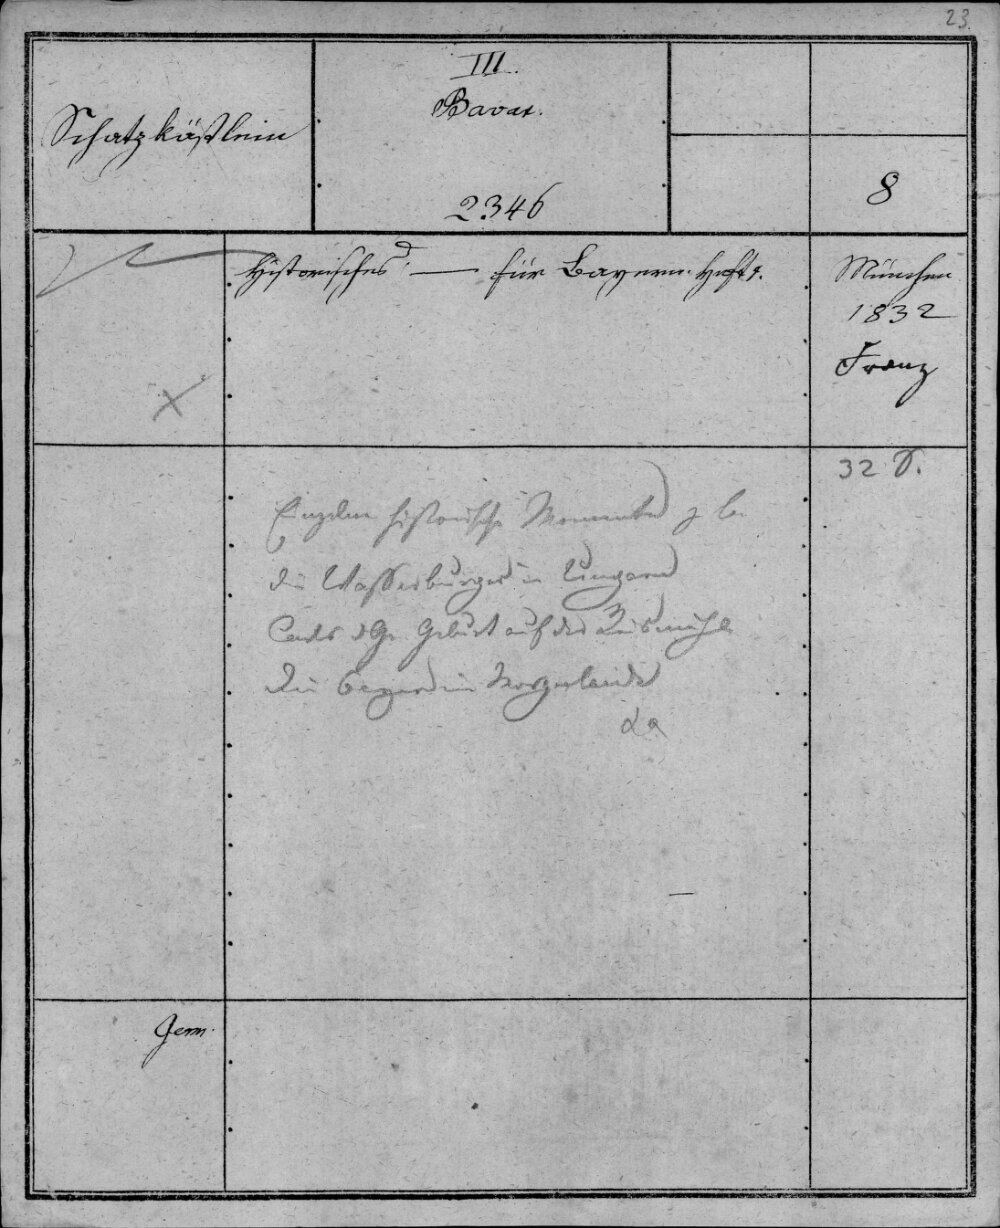 23
Schatzkästlein
III.
Bavar.
2346
8
Historisches — für Bayern. Heft 1.
München
1832
Franz
32 S.
Einzelne historische Momente z. b.
die Wasserburger in Ungarn
Carls d Gr. Geburt auf der Reismühle
Die Bayern im Morgenlande
Germ.